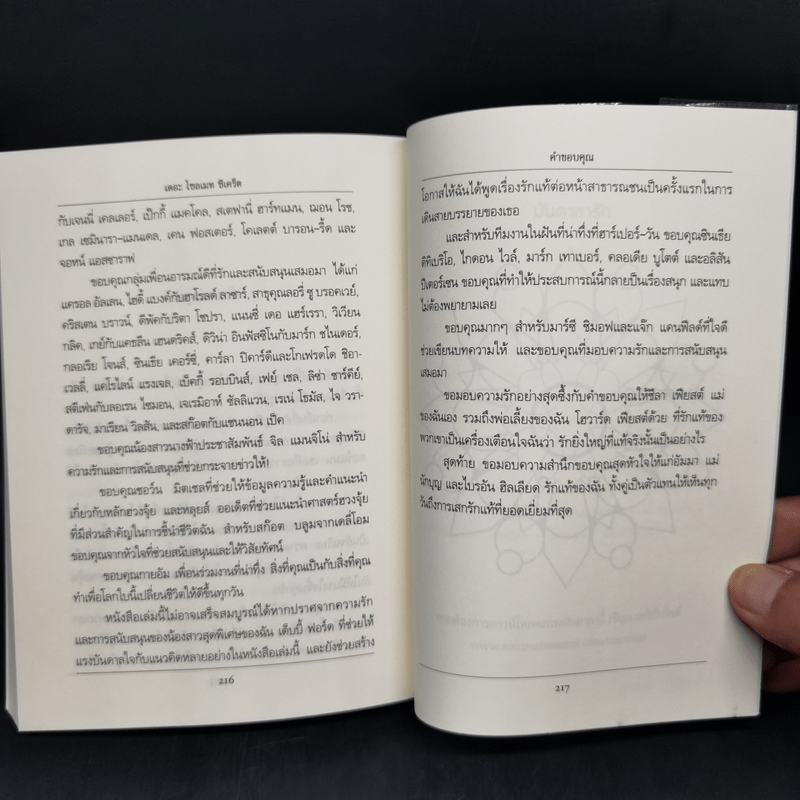 เดอะ โซลเมท ซีเคร็ต
กับเจนนี่ เคลเลอร์, เป๊กกี้ แมคโคล, สเตฟานี่ ฮาร์ทแมน, ฌอน โรช,
เกล เซมินารา-แมนเดล, เคน ฟอสเตอร์, โคเลตต์ บารอน-รี้ด และ
จอหน์ แอสซาราฟ
ขอบคุณกลุ่มเพื่อนอารมณ์ดีที่รักและสนับสนุนเสมอมา ได้แก่
แครอล อัลเลน, ไฮดี้ แบงค์กับฮาโรลด์ ลาซาร์, สาธุคุณลอรี่ ซู บรอคเวย์,
คริสเตน บราวน์, ดีพัคกับริตา โชปรา, แนนซี่ เดอ แฮร์เรรา, วิเวียน
กลิค, เกย์กับแคธลีน เฮนดริคส์, ดิวิน่า อินฟัสซิโนกับมาร์ก ชไนเดอร์,
กลอเรีย โจนส์, ซินเธีย เคอร์ซี่, คาร์ลา ปิคาร์ดีและโกเฟรดโด ชิอา-
เวลลี่, แคโรไลน์ แรงเจล, เบ็คกี้ รอบบินส์, เฟย์ เซล, ลิซ่า ชาร์คีย์,
สตีเฟ่นกับลอเรน ไซมอน, เจเรมิอาห์ ซัลลิแวน, เรเน่ โธมัส, ไจ วรา-
ดารัจ, มาเรียน วิลสัน, และสก๊อตกับแชนนอน เป็ค
ขอบคุณน้องสาวนางฟ้าประชาสัมพันธ์ จิล แมนจิโน่ สำหรับ
ความรักและการสนับสนุนที่ช่วยกระจายข่าวให้!
ขอบคุณชอว์น มิตเชลที่ช่วยให้ข้อมูลความรู้และคำแนะนำ
เกี่ยวกับหลักฮวงจุ้ย และหลุยส์ ออเด็ตที่ช่วยแนะนำศาสตร์ฮวงจุ้ย
ที่มีส่วนสำคัญในการชี้นำชีวิตฉัน สำหรับสก๊อต บลูมจากเดลี่โอม
ขอบคุณจากหัวใจที่ช่วยสนับสนุนและให้วิสัยทัศน์
ขอบคุณกายอัม เพื่อนร่วมงานที่น่าทึ่ง สิ่งที่คุณเป็นกับสิ่งที่คุณ
ทำเพื่อโลกใบนี้เปลี่ยนชีวิตให้ดีขึ้นทุกวัน
หนังสือเล่มนี้ไม่อาจเสร็จสมบูรณ์ได้หากปราศจากความรัก
และการสนับสนุนของน้องสาวสุดพิเศษของฉัน เด็บบี้ ฟอร์ด ที่ช่วยให้
แรงบันดาลใจกับแนวคิดหลายอย่างในหนังสือเล่มนี้ และยังช่วยสร้าง
216
คำขอบคุณ
โอกาสให้ฉันได้พูดเรื่องรักแท้ต่อหน้าสาธารณชนเป็นครั้งแรกในการ
เดินสายบรรยายของเธอ
และสำหรับทีมงานในฝันที่น่าทึ่งที่ฮาร์เปอร์-วัน ขอบคุณซินเธีย
ดิทิเบริโอ, ไกดอน ไวล์, มาร์ก เทาเบอร์, คลอเดีย บูโตต์ และอลิสัน
ปีเตอร์เซน ขอบคุณที่ทำให้ประสบการณ์นี้กลายเป็นเรื่องสนุก และแทบ
ไม่ต้องพยายามเลย
ขอบคุณมากๆ สำหรับมาร์ซี ชิมอฟและแจ๊ก แคนฟิลด์ที่ใจดี
ช่วยเขียนบทความให้ และขอบคุณที่มอบความรักและการสนับสนุน
เสมอมา
ขอมอบความรักอย่างสุดซึ้งกับคำขอบคุณให้ชีลา เฟียสต์ แม่
ของฉันเอง รวมถึงพ่อเลี้ยงของฉัน โฮวาร์ด เฟียสต์ด้วย ที่รักแท้ของ
พวกเขาเป็นเครื่องเตือนใจฉันว่า รักยิ่งใหญ่ที่แท้จริงนั้นเป็นอย่างไร
สุดท้าย ขอมอบความสำนึกขอบคุณสุดหัวใจให้แก่อัมมา แม่
นักบุญ และไบรอัน ฮิลเลียด รักแท้ของฉัน ทั้งคู่เป็นตัวแทนให้เห็นทุก
วันถึงการเสกรักแท้ที่ยอดเยี่ยมที่สุด
217